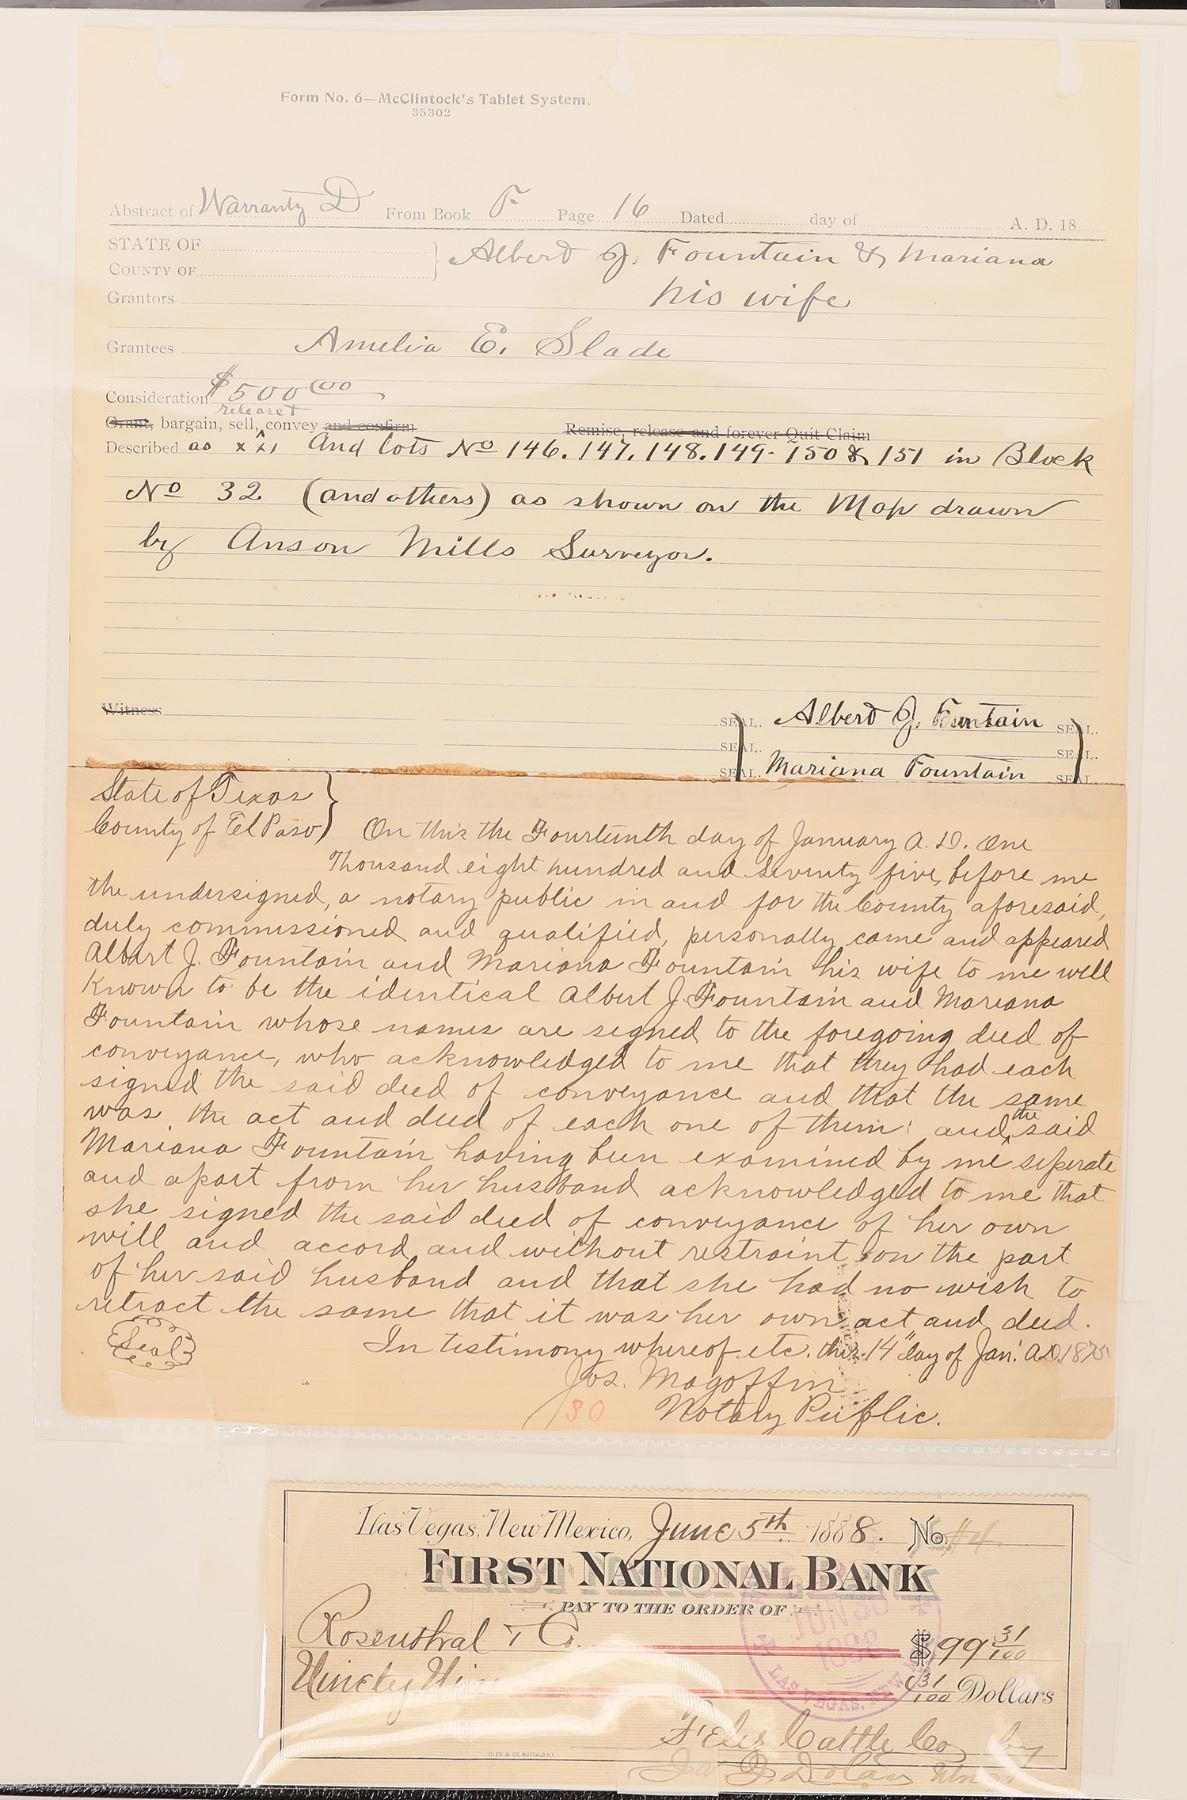 Form No. 6—McClintock's Tablet System.
35302
Abstract of Warranty D From Book F Page 16 Dated day of A. D. 18
STATE OF
COUNTY OF
Albert J. Fountain & Mariana
Grantors his wife
Grantees Amelia E. Slade
Consideration $500 00
release
Grant, bargain, sell, convey and confirm Remise, release and forever Quit Claim
Described as x x x And lots No 146. 147. 148. 149. 150 & 151 in Block
No 32 (and others) as shown on the Map drawn
by Anson Mills Surveyor.
Witness
SEAL. Albert J. Fountain SEAL.
SEAL. SEAL.
SEAL. Mariana Fountain SEAL.
State of Texas
County of El Paso
On this the Fourteenth day of January A. D. One
Thousand eight hundred and seventy five, before me
the undersigned, a notary public in and for the County aforesaid,
duly commissioned and qualified, personally came and appeared
Albert J. Fountain and Mariana Fountain his wife to me well
Known to be the identical Albert J. Fountain and Mariana
Fountain whose names are signed to the foregoing deed of
conveyance, who acknowledged to me that they had each
signed the said deed of conveyance and that the same
was the act and deed of each one of them; and the said
Mariana Fountain having been examined by me seperate
and apart from her husband acknowledged to me that
she signed the said deed of conveyance of her own
will and accord and without restraint on the part
of her said husband and that she had no wish to
retract the same that it was her own act and deed.
Seal
In testimony whereof etc. this 14" day of Jan. A.D. 1875
Jos. Magoffin
30 Notary Public.
Las Vegas, New Mexico, June 5th 1888. No. #4
FIRST NATIONAL BANK
PAY TO THE ORDER OF
Rosenthal & Co. $99 31/100
Ninety Nine 31/100 Dollars
JUN 30
LAS VEGAS, NEW
Feliz Cattle Co by
Ja J Dolan